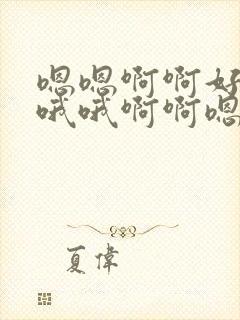 嗯嗯啊啊好
哦哦啊啊嗯
夏偉